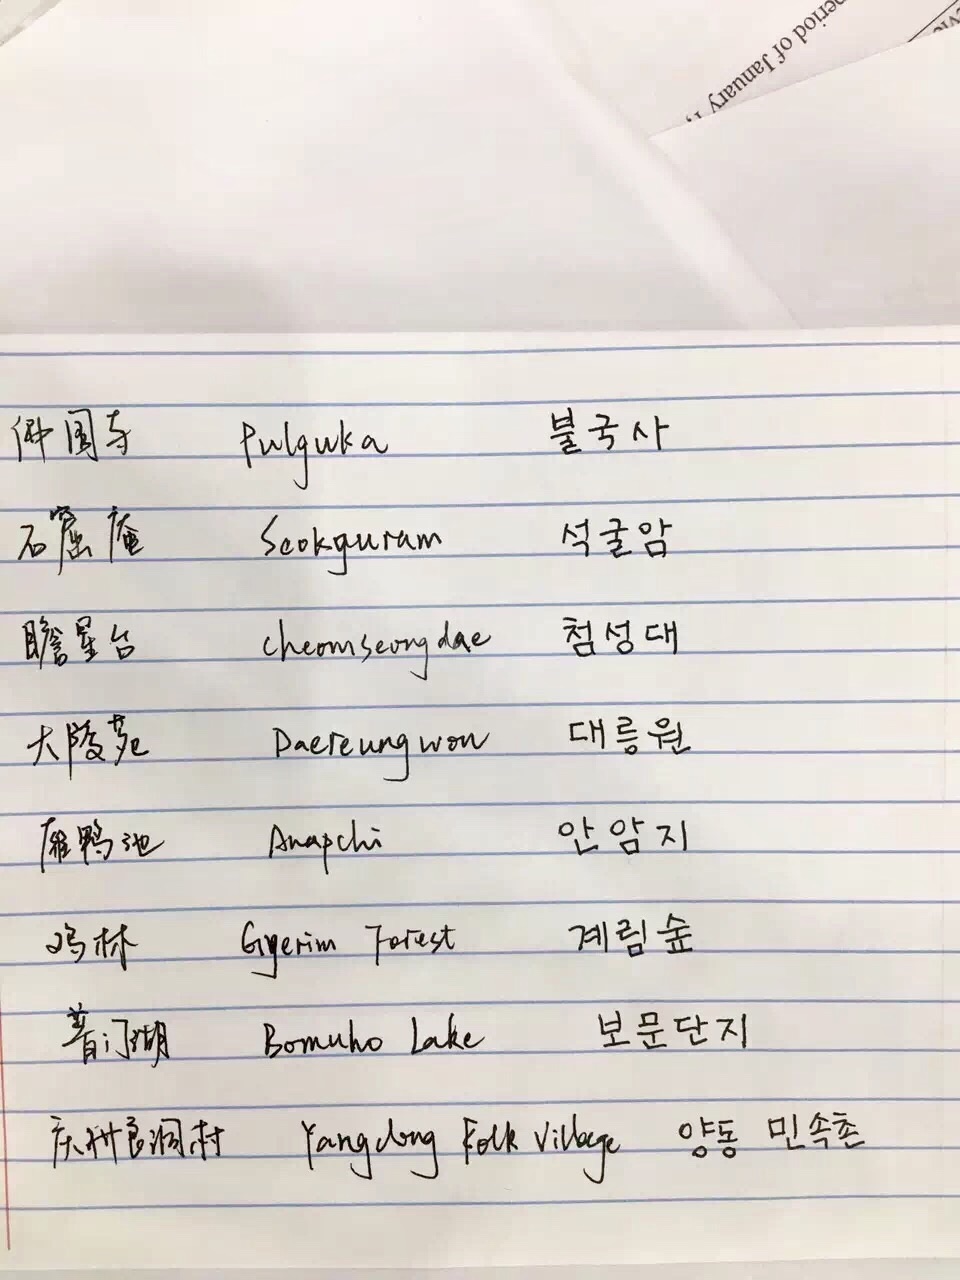 period of January 1,
佛国寺 Pulguka 불국사
石窟庵 Seokguram 석굴암
瞻星台 Cheomseongdae 첨성대
大陵苑 Daereungwon 대릉원
雁鸭池 Anapchi 안암지
鸡林 Gyerim Forest 계림숲
普门湖 Bomuho Lake 보문단지
庆州良洞村 Yangdong Folk Village 양동 민속촌